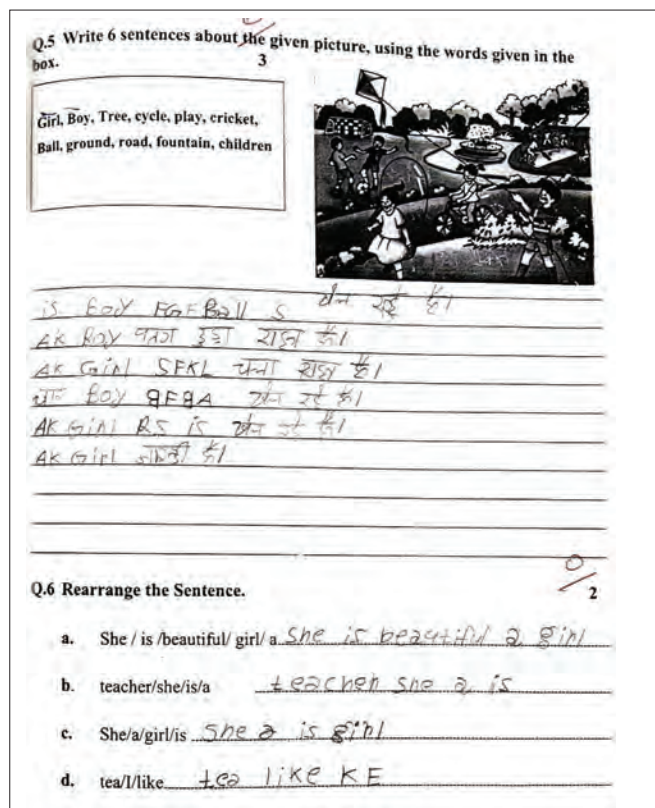 Q.5 Write 6 sentences about the given picture, using the words given in the
box. 3
Girl, Boy, Tree, cycle, play, cricket,
Ball, ground, road, fountain, children
is Boy FGFBall S खेल रहे है।
AK Boy पतग उड़ा राहा है।
AK Girl SFKL चला राहा है।
Boy खेल रहे है।
AK Girl RS is खेल रहे है।
AK Girl है।
0
Q.6 Rearrange the Sentence. 2
a. She / is /beautiful/ girl/ a She is beautiful a girl
b. teacher/she/is/a teacher she a is
c. She/a/girl/is She a is girl
d. tea/I/like tea like KE